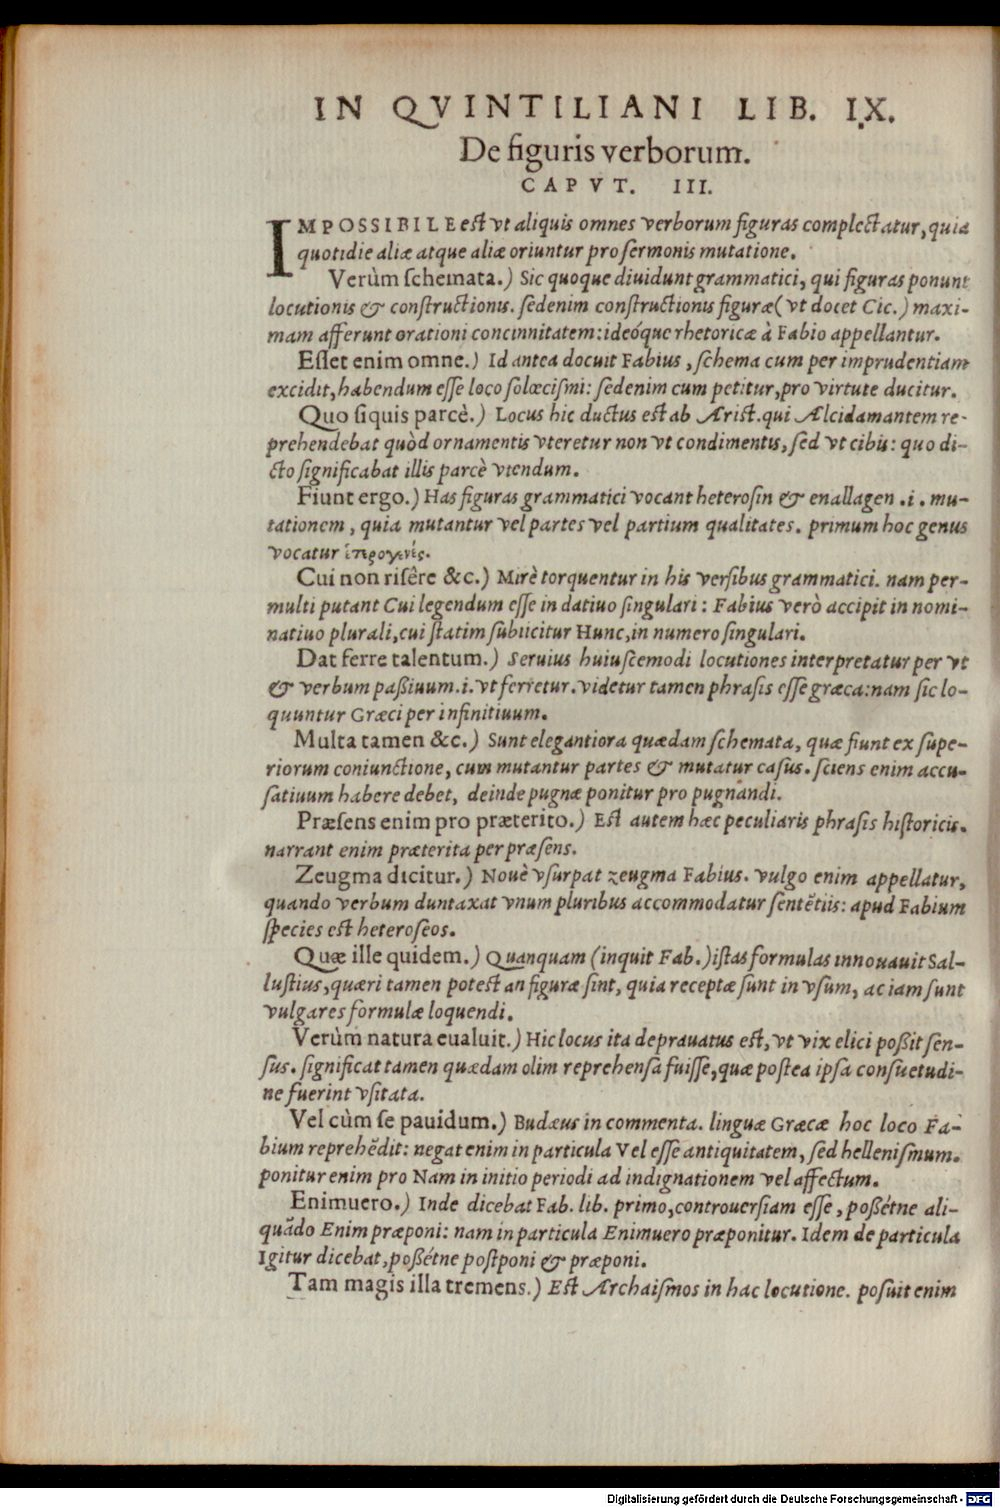 IN QVINTILIANI LIB. IX.
De figuris verborum.
CAPVT. III.
IMPOSSIBILE est vt aliquis omnes verborum figuras complectatur, quia
quotidie aliæ atque aliæ oriuntur pro sermonis mutatione.
Verùm schemata.) Sic quoque diuidunt grammatici, qui figuras ponunt
locutionis & constructionis. sedenim constructionis figuræ (vt docet Cic.) maxi-
mam afferunt orationi concinnitatem: ideóque rhetoricæ à Fabio appellantur.
Esset enim omne.) Id antea docuit Fabius, schema cum per imprudentiam
excidit, habendum esse loco solœcismi: sedenim cum petitur, pro virtute ducitur.
Quo siquis parcè.) Locus hic ductus est ab Arist. qui Alcidamantem re-
prehendebat quòd ornamentis vteretur non vt condimentis, sed vt cibis: quo di-
cto significabat illis parcè vtendum.
Fiunt ergo.) Has figuras grammatici vocant heterosin & enallagen .i. mu-
tationem, quia mutantur vel partes vel partium qualitates. primum hoc genus
vocatur ἑτερογενές.
Cui non risêre &c.) Mirè torquentur in his versibus grammatici. nam per-
multi putant Cui legendum esse in datiuo singulari: Fabius verò accipit in nomi-
natiuo plurali, cui statim subiicitur Hunc, in numero singulari.
Dat ferre talentum.) Seruius huiuscemodi locutiones interpretatur per vt
& verbum passiuum .i. vt ferretur. videtur tamen phrasis esse græca: nam sic lo-
quuntur Græci per infinitiuum.
Multa tamen &c.) Sunt elegantiora quædam schemata, quæ fiunt ex supe-
riorum coniunctione, cum mutantur partes & mutatur casus. sciens enim accu-
satiuum habere debet, deinde pugnæ ponitur pro pugnandi.
Præsens enim pro præterito.) Est autem hæc peculiaris phrasis historicis.
narrant enim præterita per præsens.
Zeugma dicitur.) Nouè vsurpat zeugma Fabius. vulgo enim appellatur,
quando verbum duntaxat vnum pluribus accommodatur sentẽtiis: apud Fabium
species est heteroseos.
Quæ ille quidem.) Quanquam (inquit Fab.) istas formulas innouauit Sal-
lustius, quæri tamen potest an figuræ sint, quia receptæ sunt in vsum, ac iam sunt
vulgares formulæ loquendi.
Verùm natura eualuit.) Hic locus ita deprauatus est, vt vix elici possit sen-
sus. significat tamen quædam olim reprehensa fuisse, quæ postea ipsa consuetudi-
ne fuerint vsitata.
Vel cùm se pauidum.) Budæus in commenta. linguæ Græcæ hoc loco Fa-
bium reprehẽdit: negat enim in particula Vel esse antiquitatem, sed hellenismum.
ponitur enim pro Nam in initio periodi ad indignationem vel affectum.
Enimuero.) Inde dicebat Fab. lib. primo, controuersiam esse, possétne ali-
quãdo Enim præponi: nam in particula Enimuero præponitur. Idem de particula
Igitur dicebat, possétne postponi & præponi.
Tam magis illa tremens.) Est Archaismos in hac locutione. posuit enim
Digitalisierung gefördert durch die Deutsche Forschungsgemeinschaft - DFG